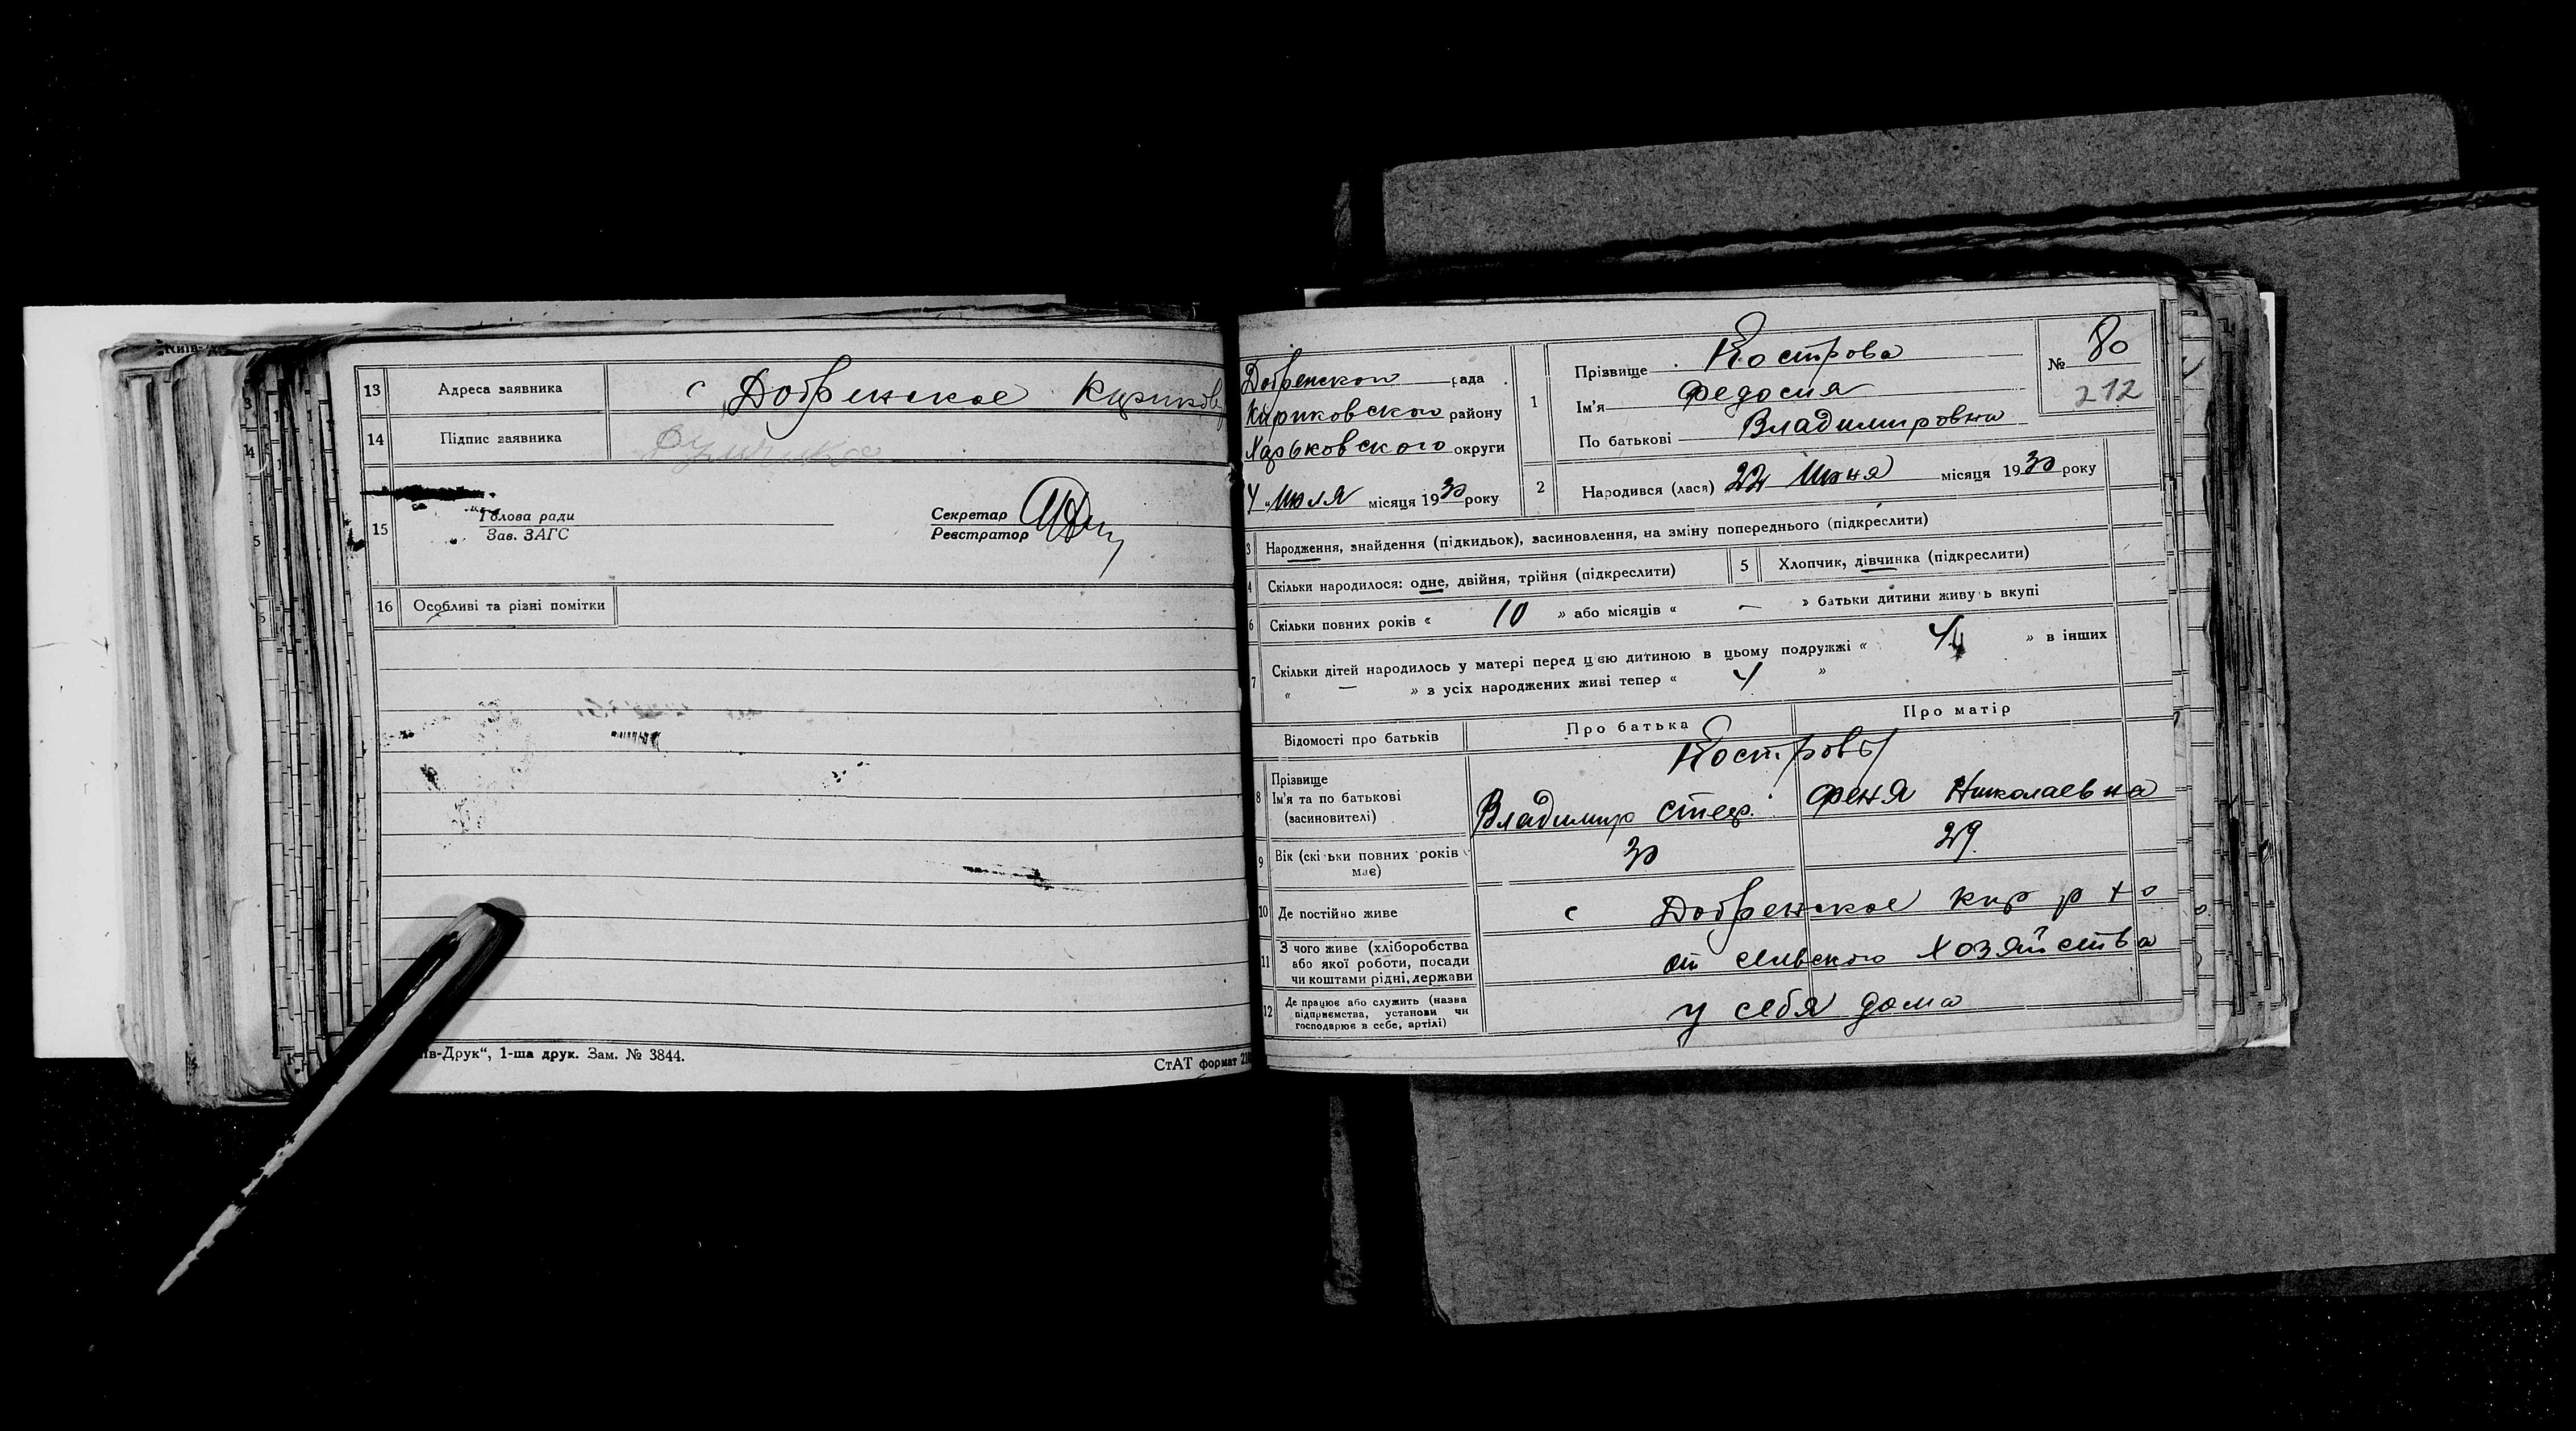 13 Адреса заявника с Добренское Кириков
14 Підпис заявника
15 Голова ради
Зав. ЗАГС
Секретар
Реєстратор
16 Особливі та різні помітки
1-ша друк. Зам. № 3844.
СтАТ формат
Добренской рада
Кириковского району
Харьковского округи
4 Июля місяця 1930 року
1 Прізвище Кострова
Ім'я Федосия
По батькові Владимировна
№ 80
212
2 Народився (лася) 22 Июня місяця 1930 року
3 Народження, знайдення (підкидьок), засиновлення, на зміну попереднього (підкреслити)
4 Скільки народилося: одне, двійня, трійня (підкреслити)
5 Хлопчик, дівчинка (підкреслити)
6 Скільки повних років « 10 » або місяців « — » батьки дитини живуть вкупі
7 Скільки дітей народилось у матері перед цією дитиною в цьому подружжі « 4 » в інших
« — » з усіх народжених живі тепер « 4 »
Відомості про батьків Про батька Про матір
Костровы
8 Прізвище
Ім'я та по батькові
(засиновителі)
Владимир Стеф. Феня Николаевна
9 Вік (скільки повних років
має)
30 29
10 Де постійно живе с Добренское Кир р × о
11 З чого живе (хліборобства
або якої роботи, посади
чи коштами рідні, держави
от сельского хозяйства
12 Де працює або служить (назва
підприємства, установи чи
господарює в себе, артілі)
у себя дома